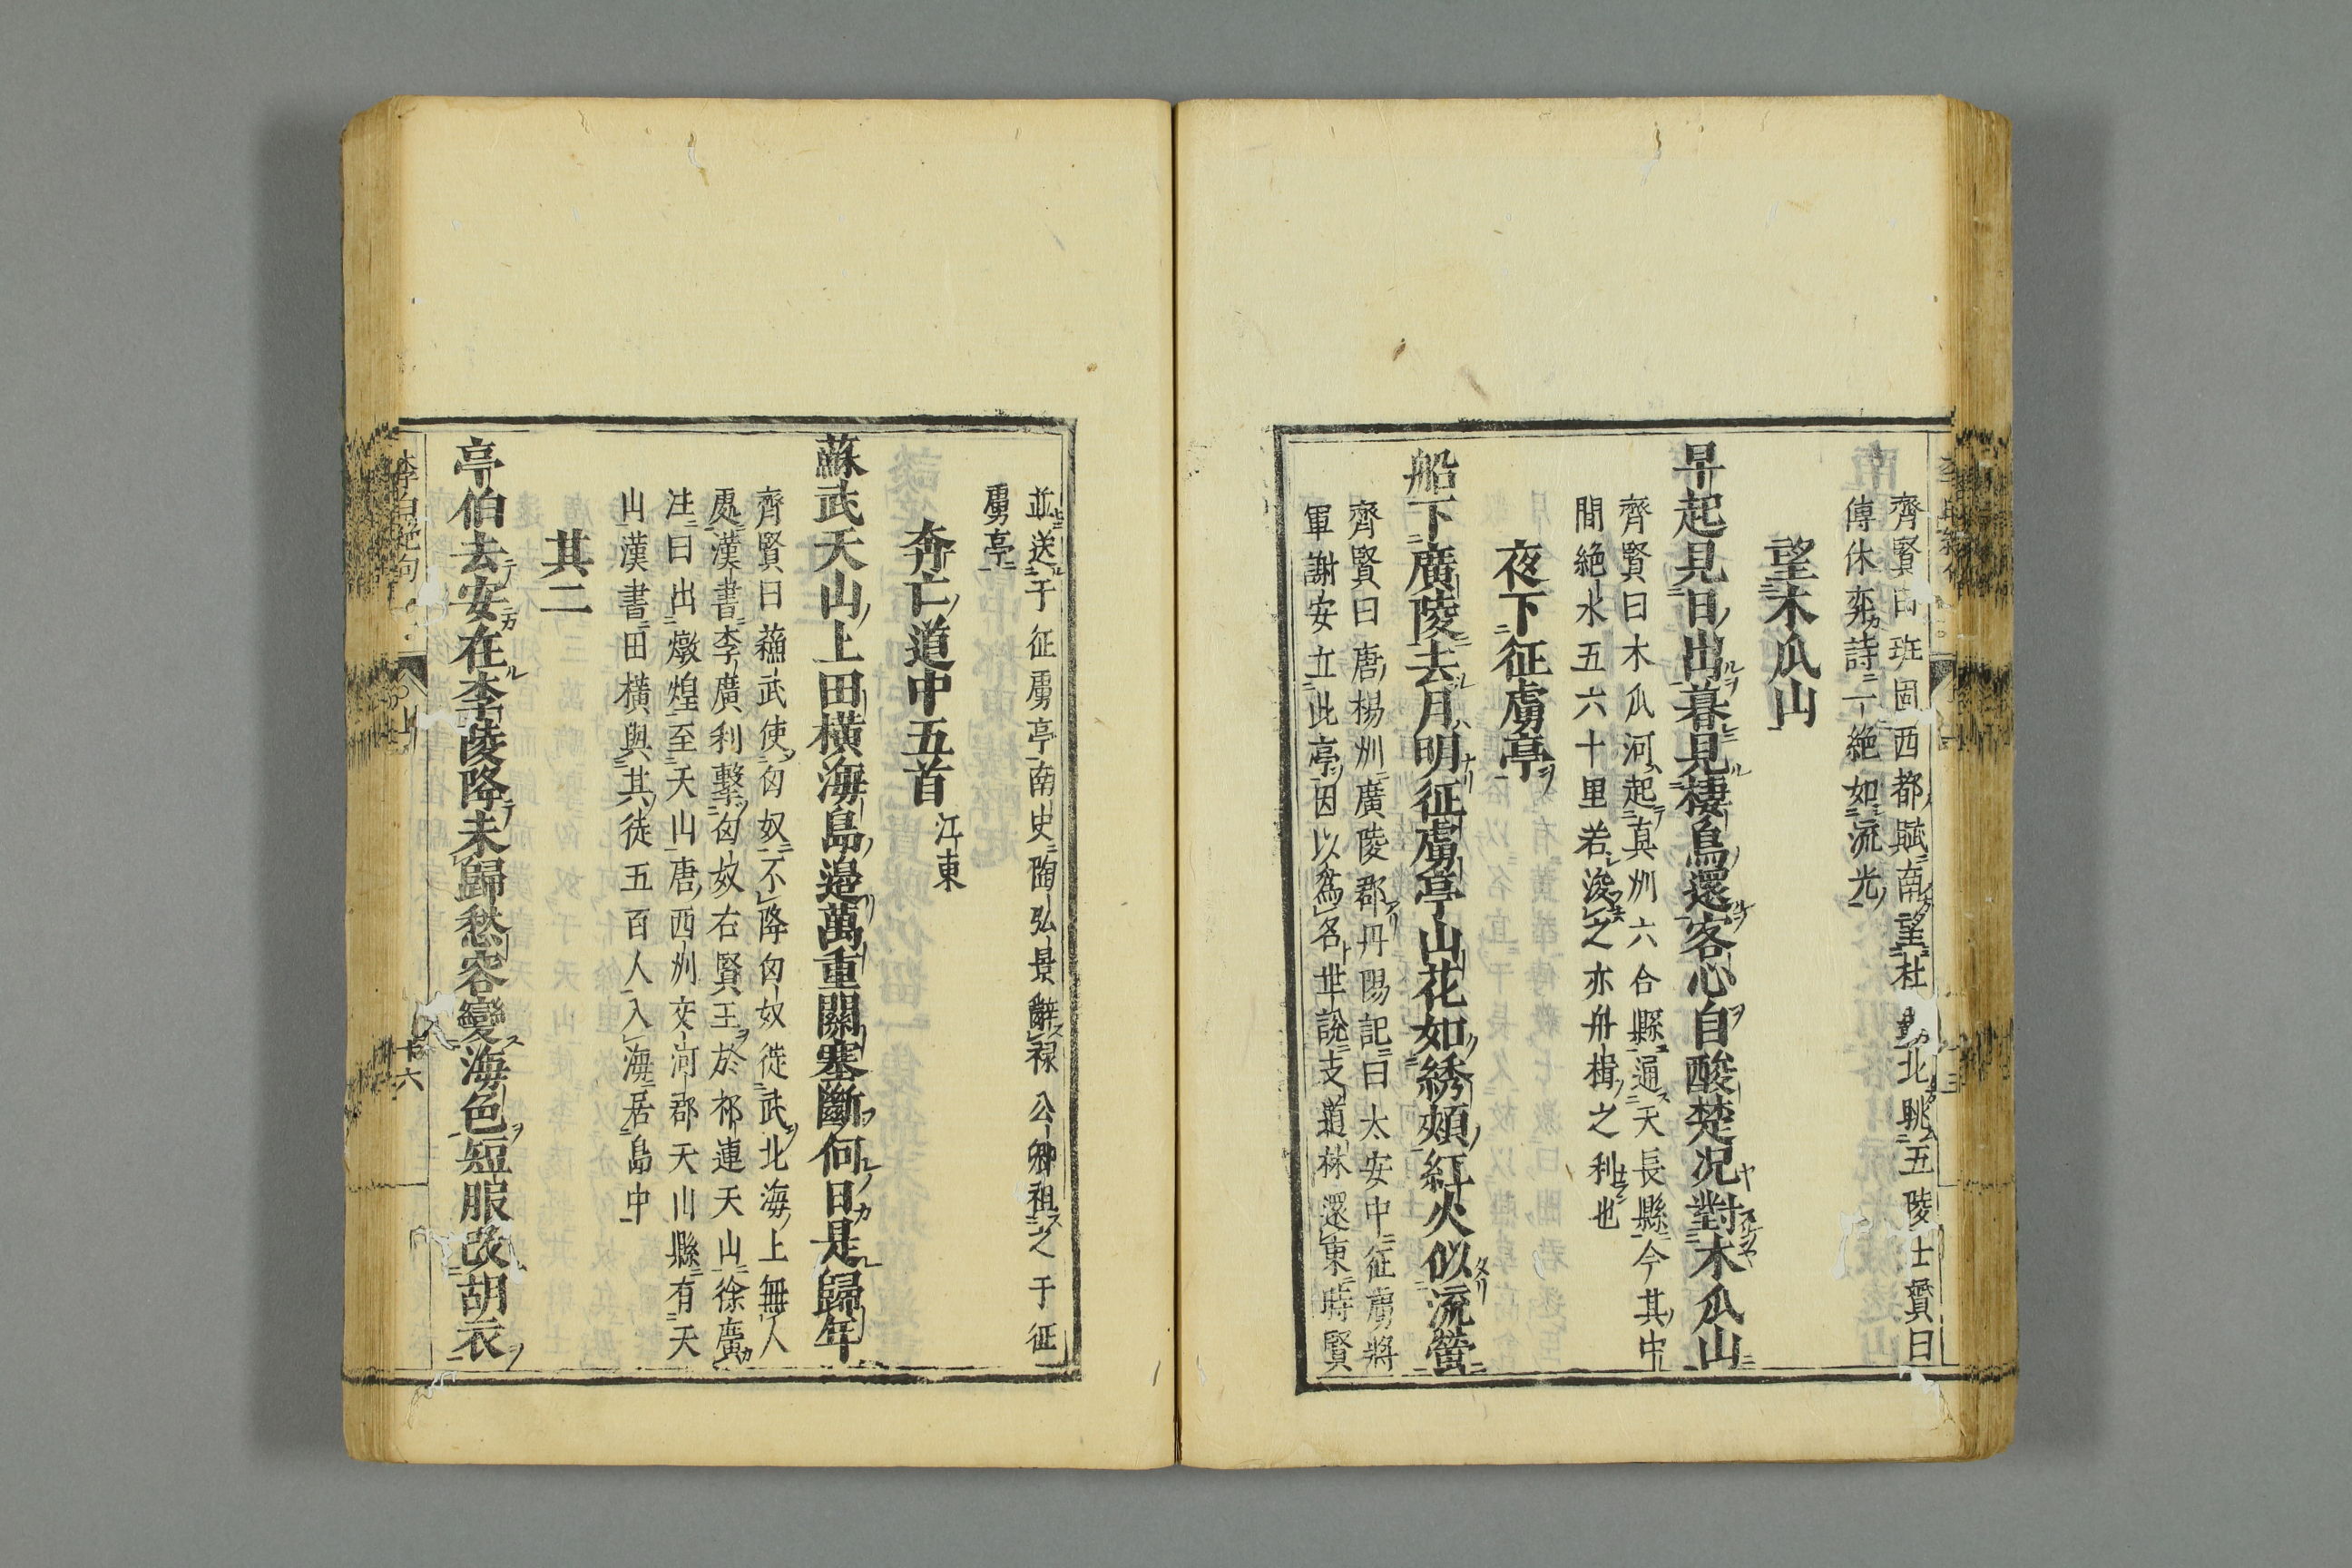 齊賢曰班固西都賦南望杜北眺五陵士贇曰
傳休奕詩一絶如流光
望木瓜山
早起見日出暮見棲鳥還客心自酸楚况對木瓜山
齊賢曰木瓜河起真州六合縣通天長縣今其中
間絶水五六十里若浚之亦舟楫之利也
夜下征虜亭
船下廣陵去月明征虜亭山花如綉頰紅火似流螢
齊賢曰唐楊州廣陵郡丹陽記曰太安中征虜將
軍謝安立此亭因以爲名世說支道林還東時賢
並送于征虜亭南史陶弘景辭禄公卿祖之于征
虜亭
奔亡道中五首 江東
蘇武天山上田橫海島邉萬重關塞斷何日是歸年
齊賢曰蘓武使匈奴不降匈奴徙武北海上無人
處漢書李廣利擊匈奴右賢王於祁連天山徐廣
注曰出燉煌至天山唐西州交河郡天山縣有天
山漢書田橫與其徒五百人入海居島中
其二
亭伯去安在李陵降未歸愁容變海色短服改胡衣
李白絶句
上
十六